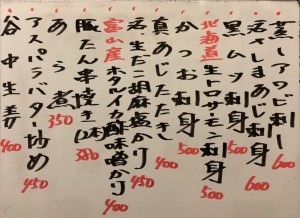 蒸しアワビ刺し 600
活〆しまあじ刺身 600
黒ムツ刺身 500
北海道生トロサーモン刺身 500
かつお刺身 500
真あじ刺身 400
活生だこ胡麻塩かけ 450
富山産ホタルイカ酢味噌かけ 400
豚たん串焼き(2本) 380
あら煮 350
アスパラバター炒め 450
谷中生姜 400